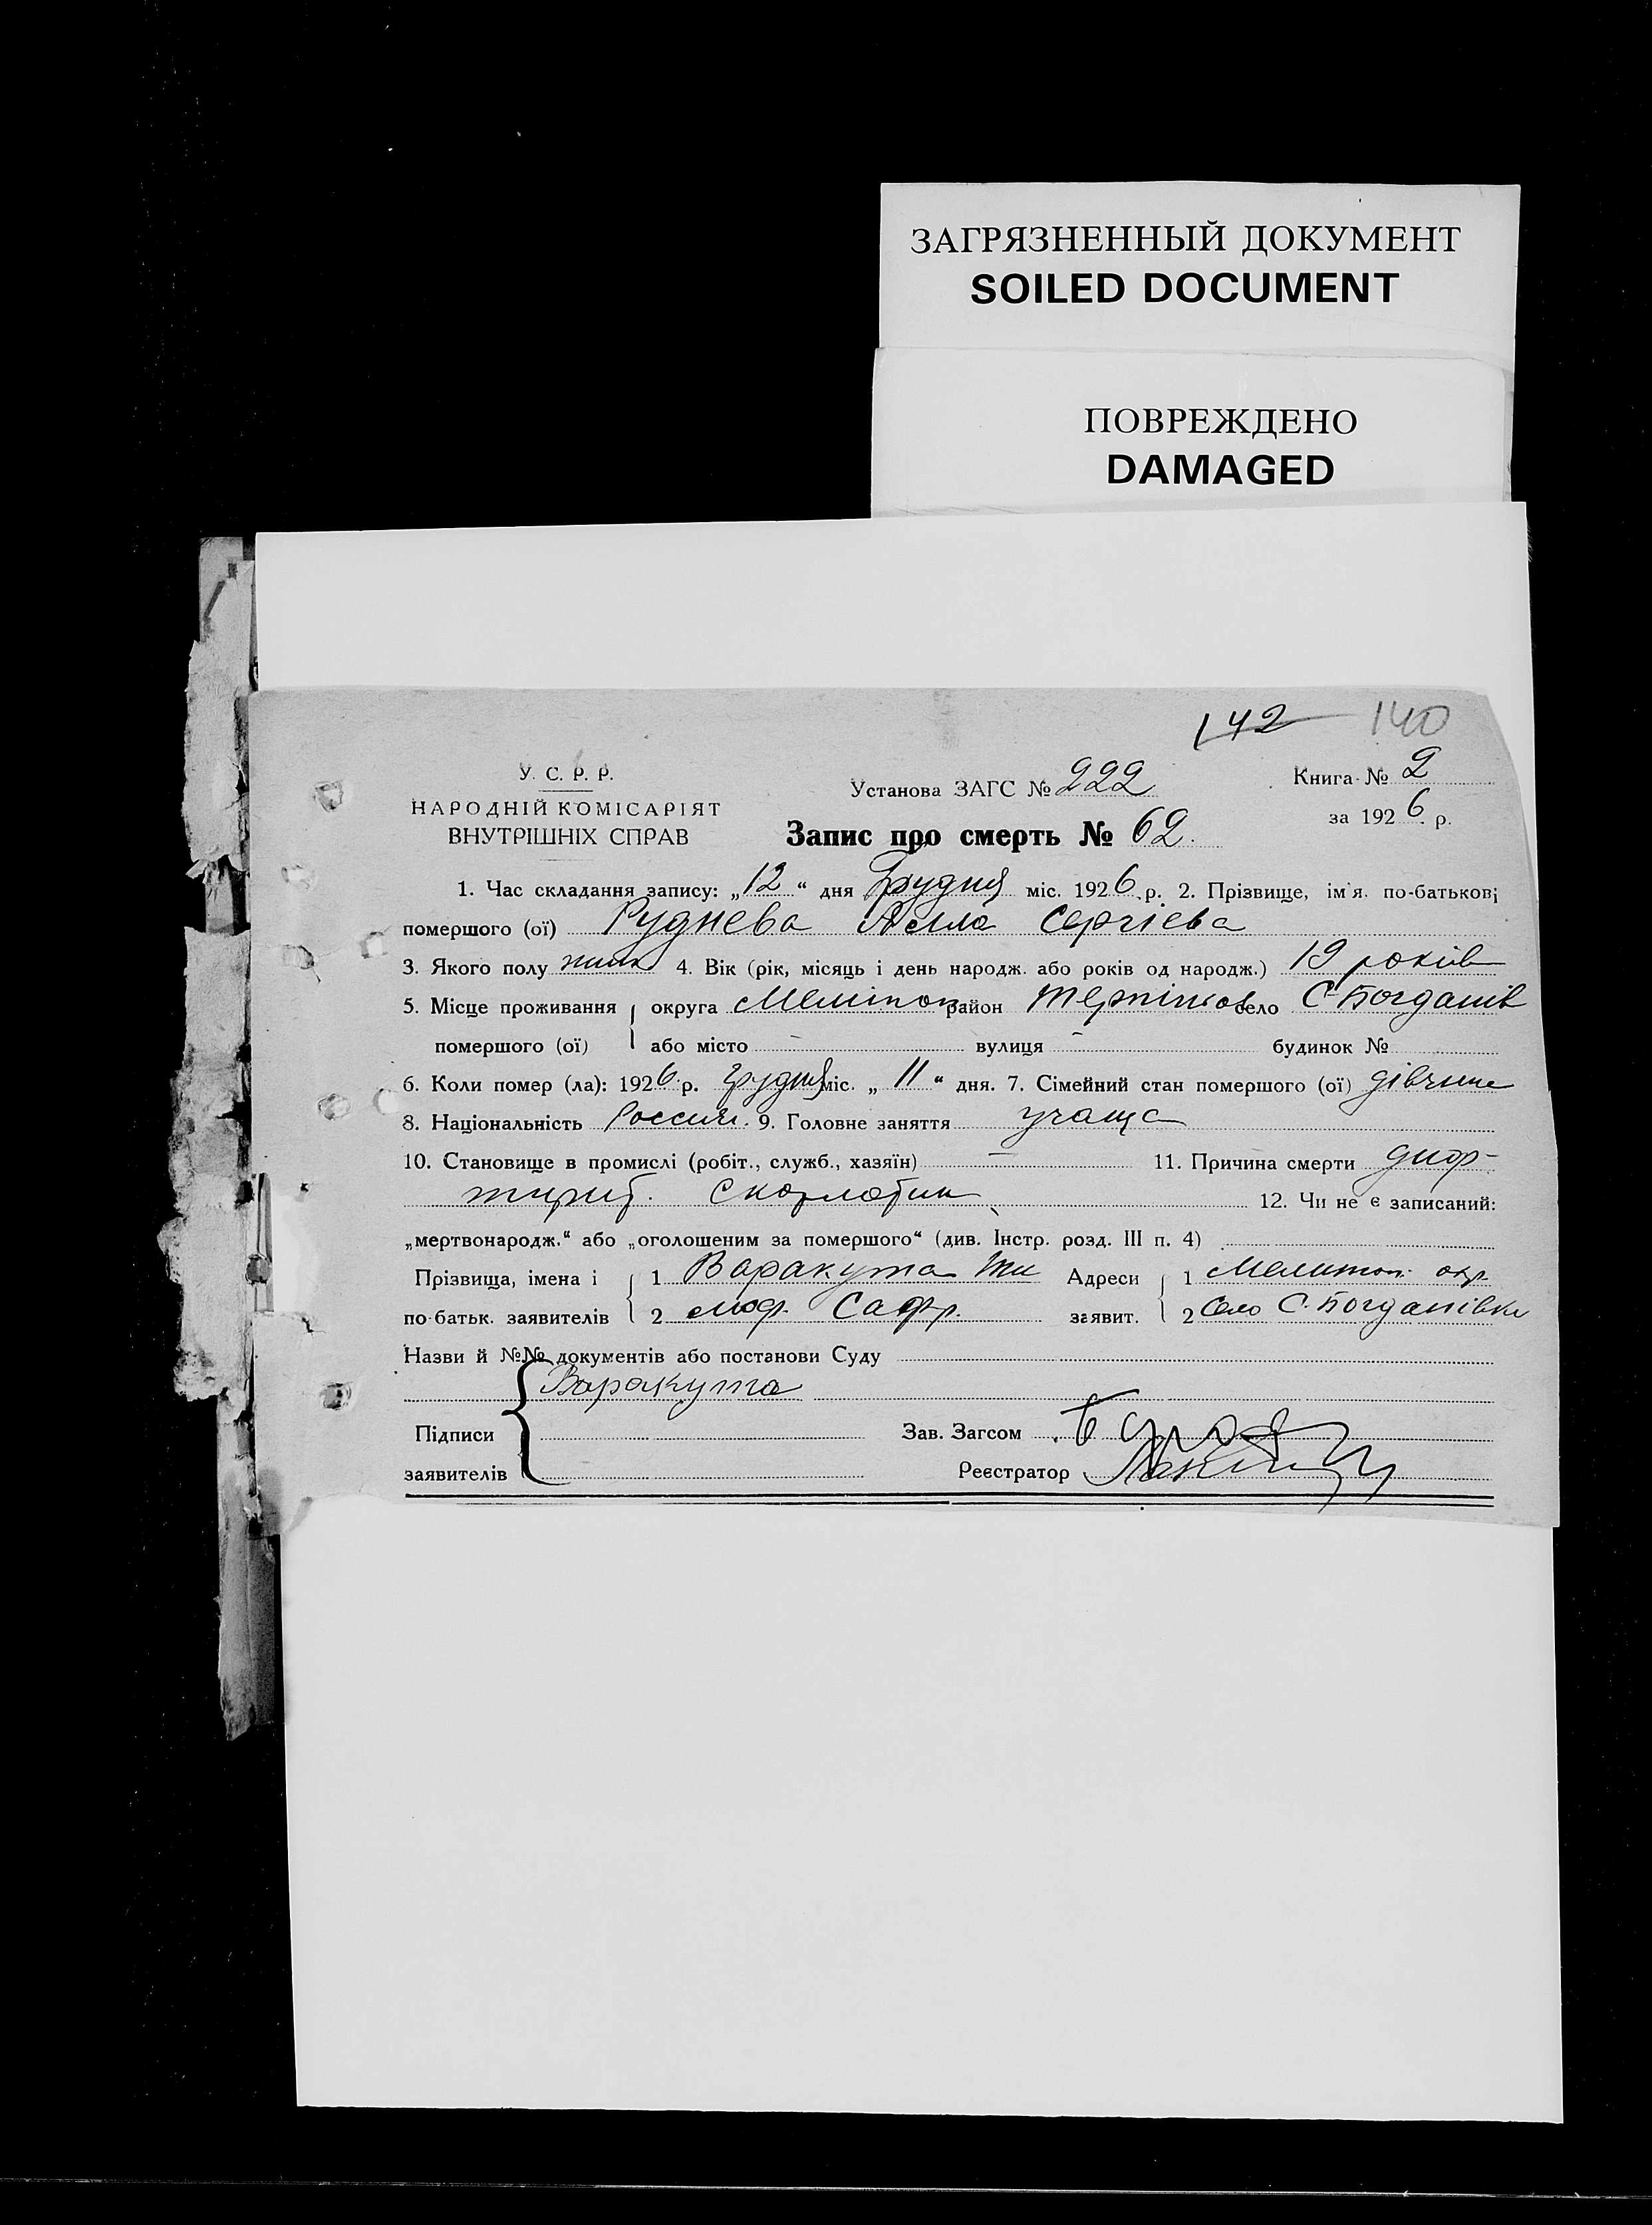 ЗАГРЯЗНЕННЫЙ ДОКУМЕНТ
SOILED DOCUMENT
ПОВРЕЖДЕНО
DAMAGED
142 140
У. С. Р. Р.
НАРОДНІЙ КОМІСАРІЯТ
ВНУТРІШНІХ СПРАВ
Установа ЗАГС № 222
Книга № 2
за 1926 р.
Запис про смерть № 62.
1. Час складання запису: „12“ дня Грудня міс. 1926 р. 2. Прізвище, ім'я. по-батькові
помершого (ої) Руднева Алла Сергіева
3. Якого полу жин 4. Вік (рік, місяць і день народж. або років од народж.) 19 років
5. Місце проживання округа Меліток район Терпінков село С-Богданів
помершого (ої) або місто — вулиця — будинок №
6. Коли помер (ла): 1926 р. грудня міс. „11“ дня. 7. Сімейний стан помершого (ої) дівчина
8. Національність Россия. 9. Головне заняття учаща
10. Становище в промислі (робіт., служб., хазяїн) — 11. Причина смерти диф-
тирит. скорлатин 12. Чи не є записаний:
„мертвонародж.“ або „оголошеним за помершого“ (див. Інстр. розд. III п. 4)
Прізвища, імена і 1 Варакута Ти Адреси 1 Мелитоп. окр.
по-батьк. заявителів 2 моф. Сафр. заявит. 2 Село С. Богданівки
Назви й №№ документів або постанови Суду
Варакута
Підписи Зав. Загсом
заявителів Реєстратор